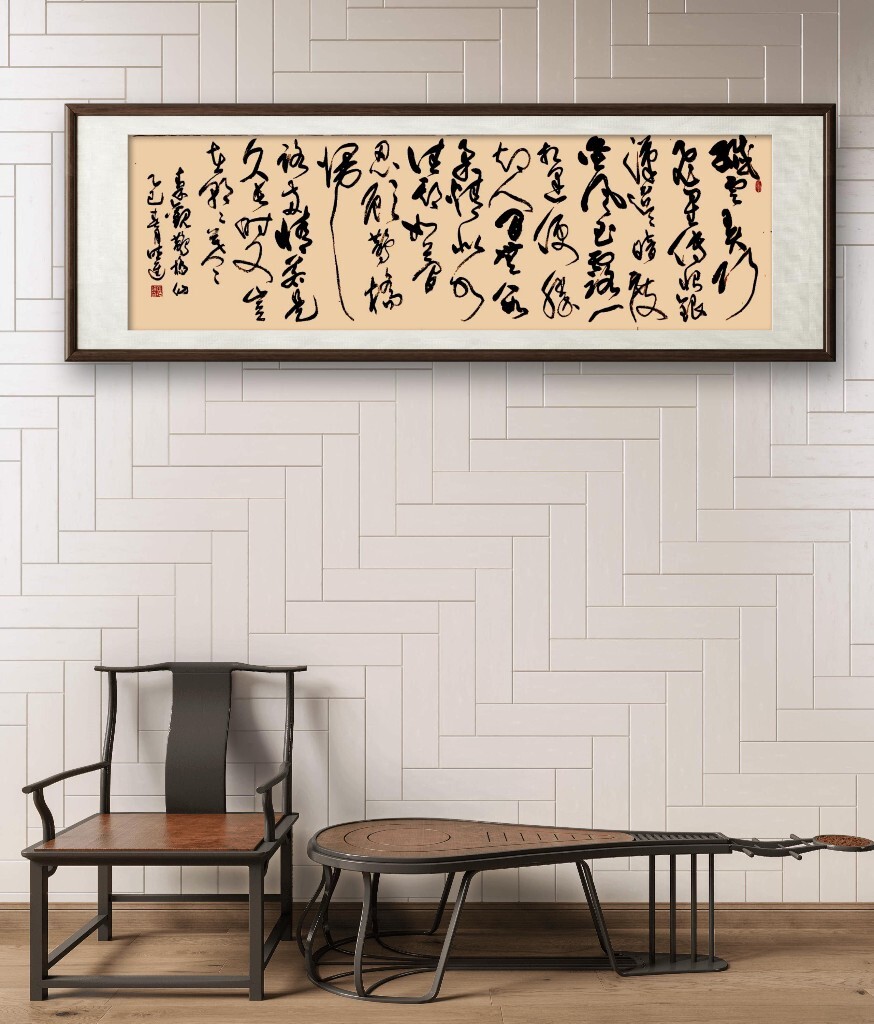 纖雲弄巧
飛星傳恨銀
漢迢々暗度
金風玉露一
相逢便勝
却人間無數
柔情似水
佳期如夢
忍顧鵲橋
歸
路兩情若是
久長時又豈
在朝々暮々
秦觀鵲橋仙
乙巳春月